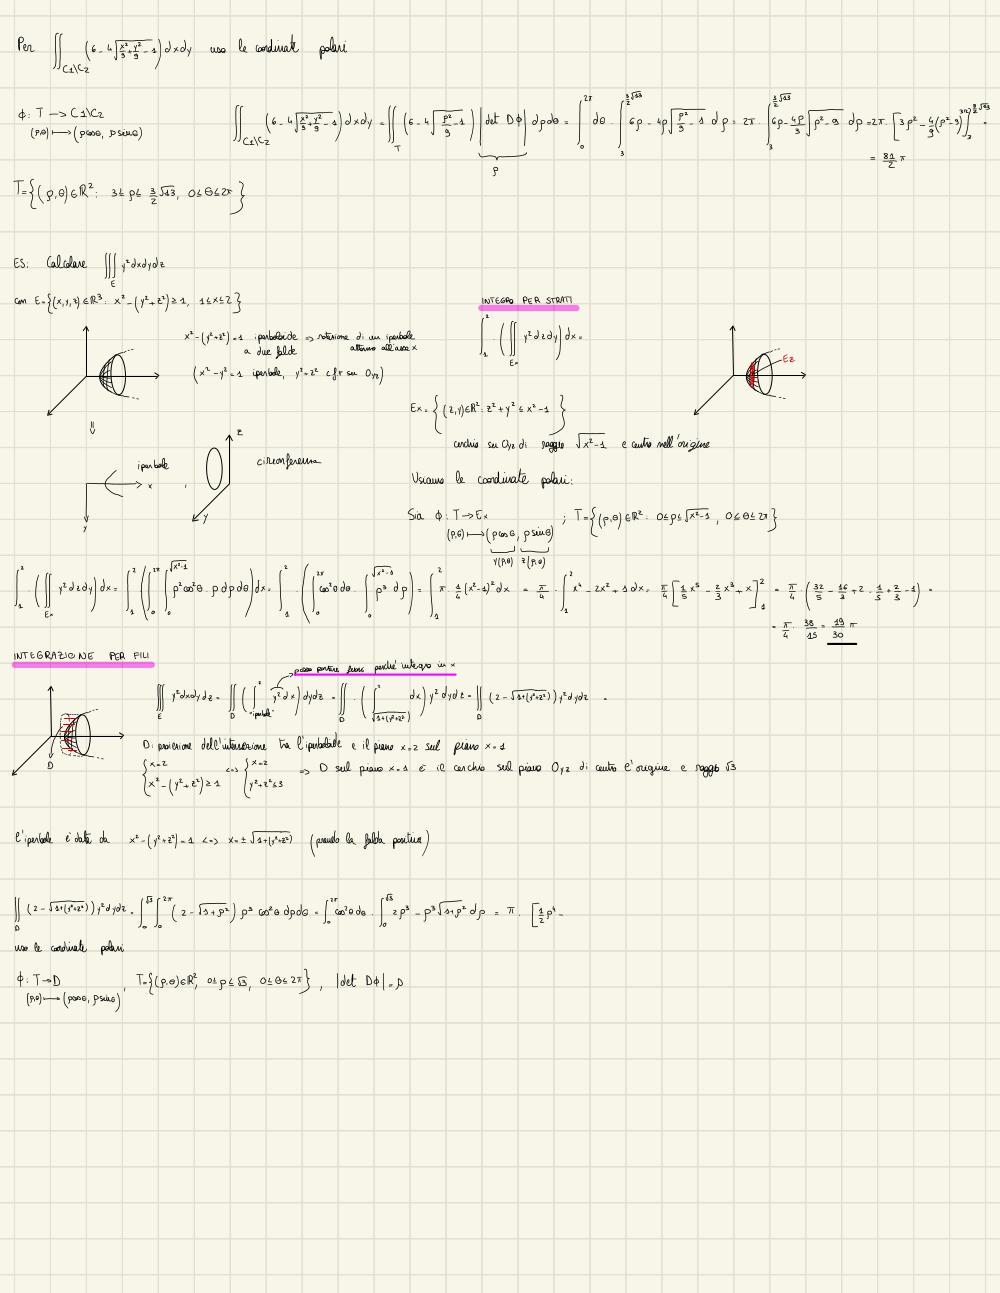 Per ∬_{C1\C2} (6 - 4√(x²/9 + y²/9 - 1)) dxdy uso le coordinate polari
ϕ: T → C1\C2
(ρ,θ) ↦ (ρcosθ, ρsinθ)
∬_{C1\C2} (6 - 4√(x²/9 + y²/9 - 1)) dxdy = ∬_T (6 - 4√(ρ²/9 - 1)) |det Dϕ| dρdθ = ∫_0^{2π} dθ · ∫_3^{3/2 √13} 6ρ - 4ρ√(ρ²/9 - 1) dρ = 2π · ∫_3^{3/2 √13} 6ρ - 4ρ/3 √(ρ² - 9) dρ = 2π · [3ρ² - 4/9 (ρ² - 9)^{3/2}]_3^{3/2 √13} =
ρ
= 81/2 π
T = {(ρ,θ) ∈ ℝ²: 3 ≤ ρ ≤ 3/2 √13, 0 ≤ θ ≤ 2π}
ES: Calcolare ∭_E y² dxdydz
con E = {(x,y,z) ∈ ℝ³: x² - (y² + z²) ≥ 1, 1 ≤ x ≤ 2}
INTEGRO PER STRATI
x² - (y² + z²) = 1 iperboloide a due falde => rotazione di un iperbole attorno all'asse x
(x² - y² = 1 iperbole, y² + z² cfr su O_yz)
∫_1^2 (∬_{Ex} y² dzdy) dx =
Ez
Ex = {(z,y) ∈ ℝ²: z² + y² ≤ x² - 1}
cerchio su O_yz di raggio √(x² - 1) e centro nell'origine
iperbole
x
y
,
z
y
circonferenza
Usiamo le coordinate polari:
Sia ϕ: T → Ex ; T = {(ρ,θ) ∈ ℝ²: 0 ≤ ρ ≤ √(x² - 1), 0 ≤ θ ≤ 2π}
(ρ,θ) ↦ (ρcosθ, ρsinθ)
y(ρ,θ) z(ρ,θ)
∫_1^2 (∬_{Ex} y² dzdy) dx = ∫_1^2 (∫_0^{2π} ∫_0^{√(x²-1)} ρ²cos²θ · ρ dρdθ) dx = ∫_1^2 · (∫_0^{2π} cos²θ dθ · ∫_0^{√(x²-1)} ρ³ dρ) = ∫_1^2 π · 1/4 (x² - 1)² dx = π/4 · ∫_1^2 x⁴ - 2x² + 1 dx = π/4 [1/5 x⁵ - 2/3 x³ + x]_1^2 = π/4 · (32/5 - 16/3 + 2 - 1/5 + 2/3 - 1) =
= π/4 · 38/15 = 19/30 π
INTEGRAZIONE PER FILI
posso portare fuori perché integro in x
∭_E y² dxdydz = ∬_D (∫_{"iperbole"}^2 y² dx) dydz = ∬_D · (∫_{√(1+(y²+z²))}^2 dx) y² dydz = ∬_D (2 - √(1+(y²+z²))) y² dydz =
D
D: proiezione dell'intersezione tra l'iperboloide e il piano x=2 sul piano x=1
{x=2, x² - (y² + z²) ≥ 1 <=> {x=2, y² + z² ≤ 3 => D sul piano x=1 è il cerchio sul piano O_yz di centro l'origine e raggio √3
l'iperbole è data da x² - (y² + z²) = 1 <=> x = ± √(1+(y²+z²)) (prendo la falda positiva)
∬_D (2 - √(1+(y²+z²))) y² dydz = ∫_0^{√3} ∫_0^{2π} (2 - √(1+ρ²)) ρ³ cos²θ dρdθ = ∫_0^{2π} cos²θ dθ · ∫_0^{√3} 2ρ³ - ρ³√(1+ρ²) dρ = π · [1/2 ρ⁴ -
uso le coordinate polari
ϕ: T → D , T = {(ρ,θ) ∈ ℝ², 0 ≤ ρ ≤ √3, 0 ≤ θ ≤ 2π} , |det Dϕ| = ρ
(ρ,θ) ↦ (ρcosθ, ρsinθ)